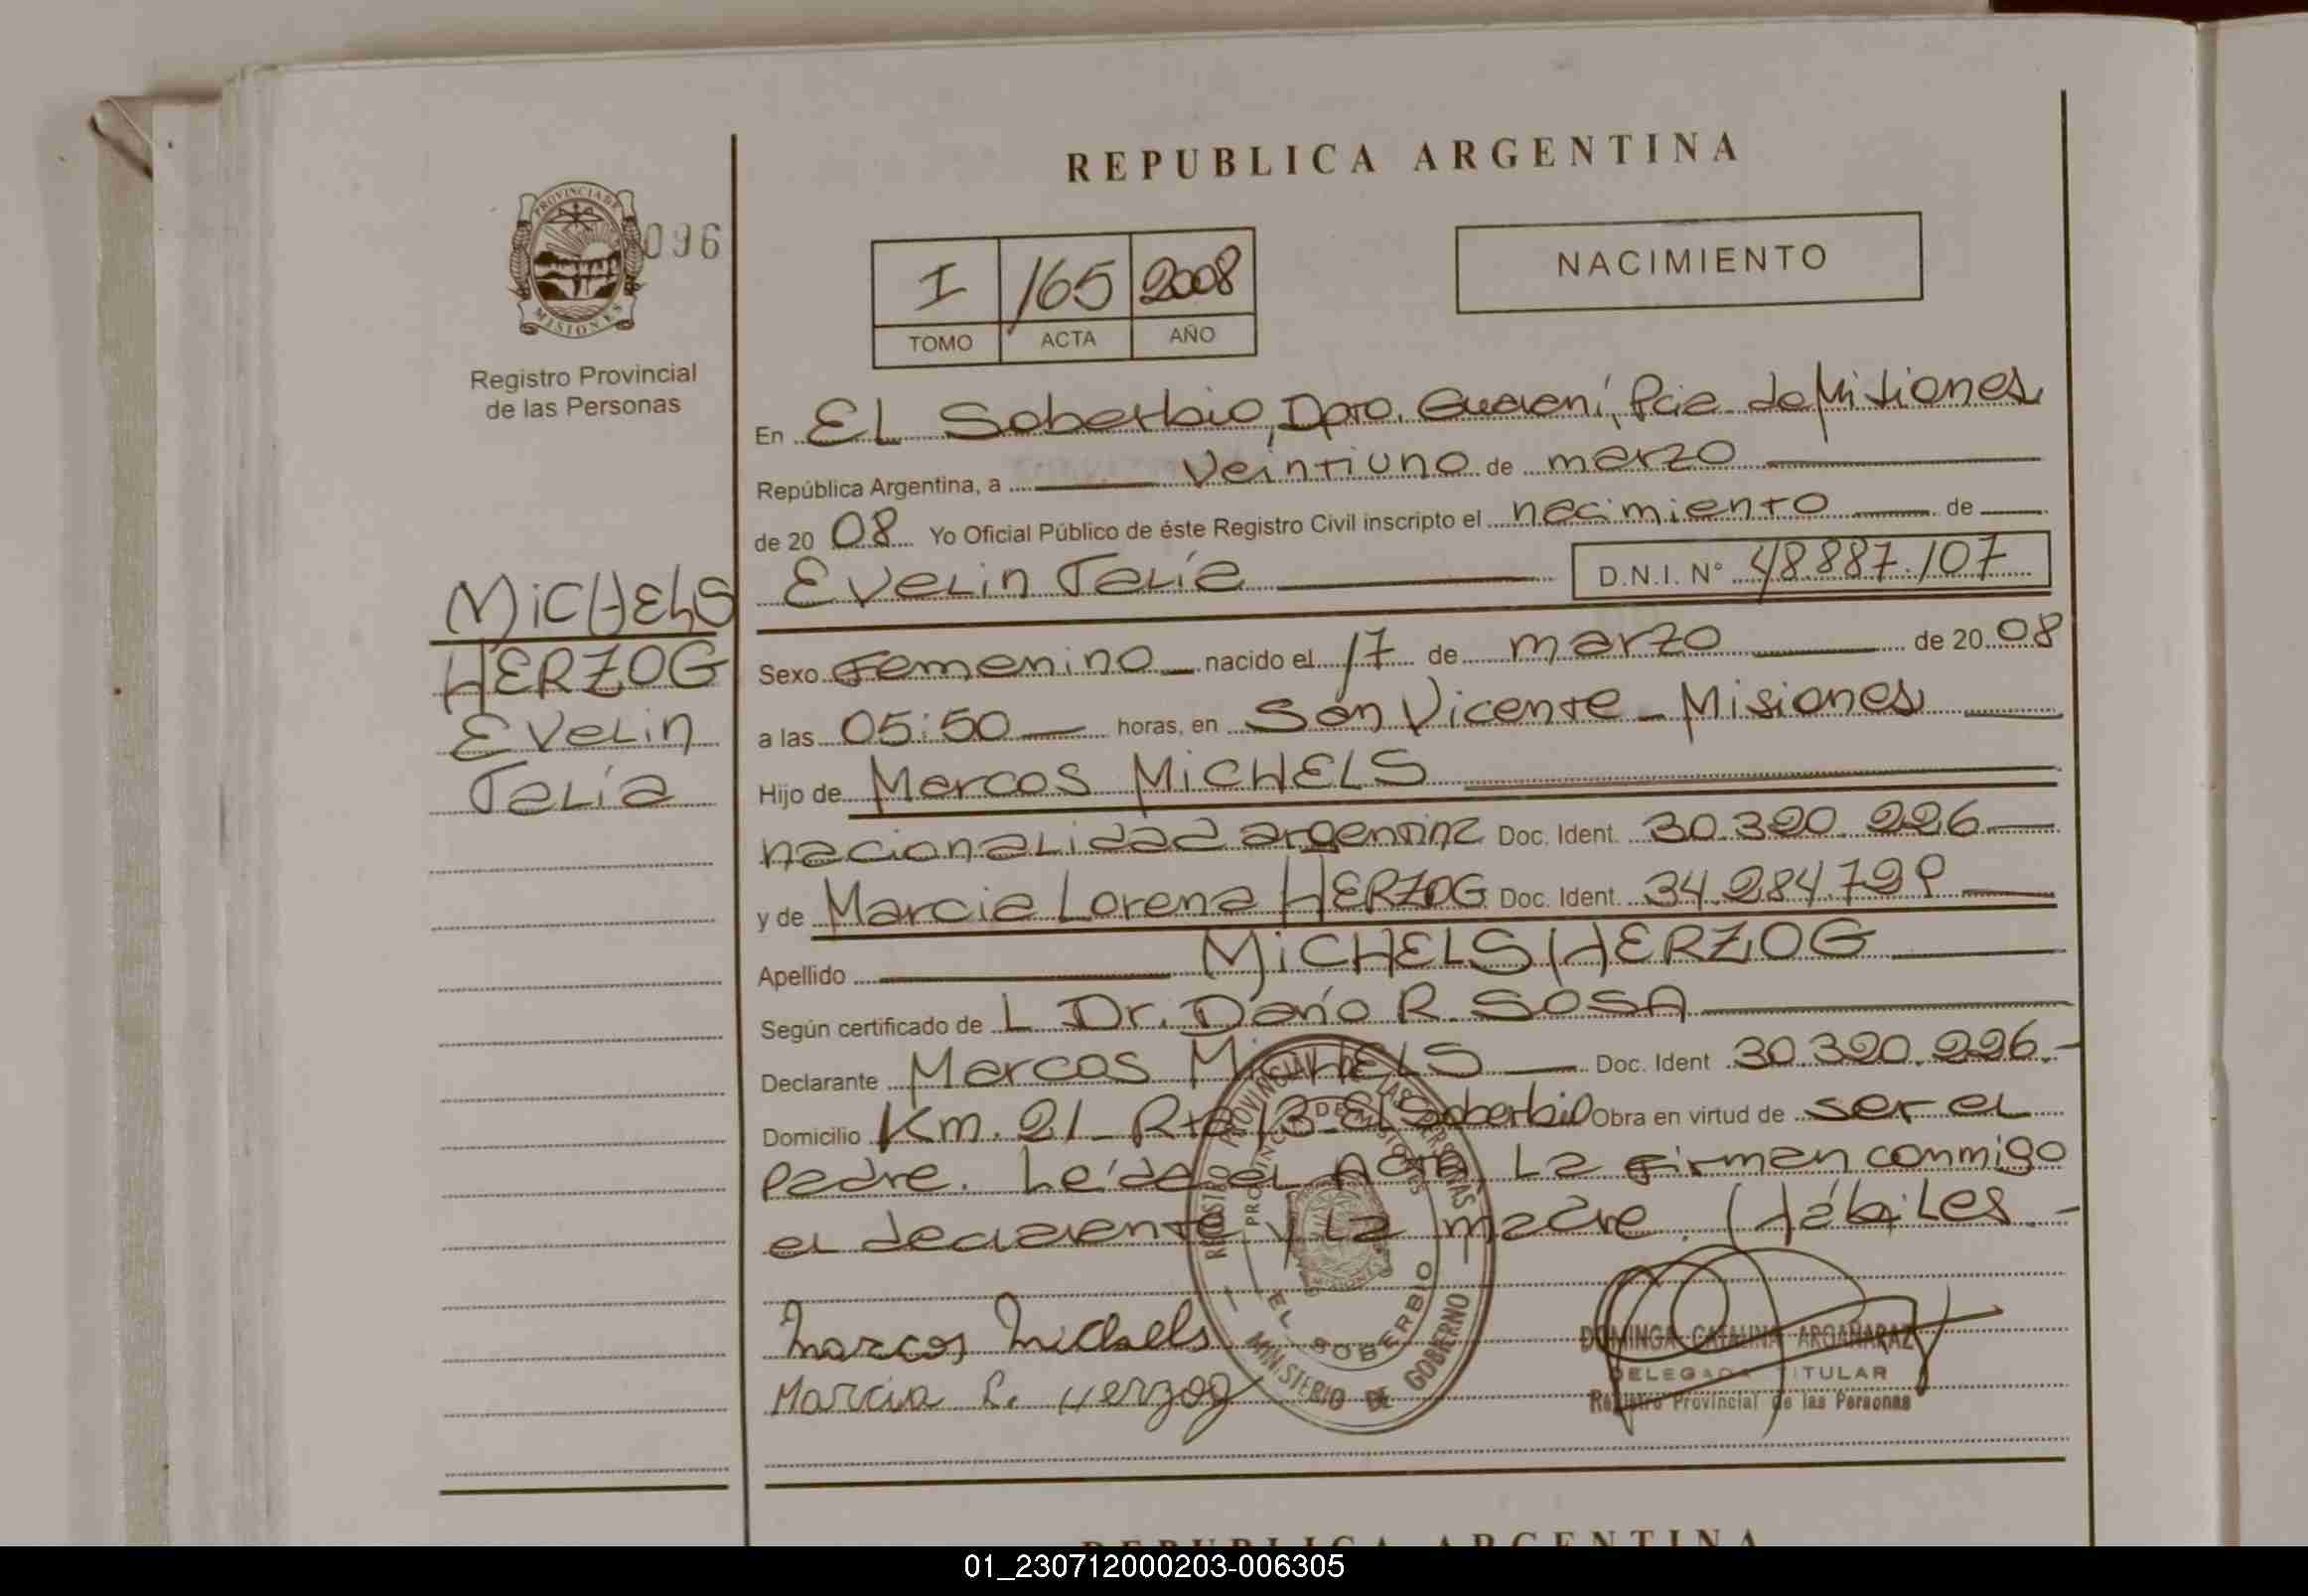 REPUBLICA ARGENTINA
PROVINCIA DE
MISIONES
096
Registro Provincial
de las Personas
I 165 2008
TOMO ACTA AÑO
NACIMIENTO
En EL Soberbio, Dpto. Guaraní, Pcia de Misiones
República Argentina, a veintiuno de marzo
de 20 08 Yo Oficial Público de éste Registro Civil inscripto el nacimiento de
Evelin Talía D.N.I. N° 48.887.107
MICHELS
HERZOG
Evelin
Talía
Sexo Femenino nacido el 17 de marzo de 20 08
a las 05:50 horas, en San Vicente - Misiones
Hijo de Marcos MICHELS
nacionalidad argentina Doc. Ident. 30.320.226
y de Marcia Lorena HERZOG Doc. Ident. 34.284.729
Apellido MICHELS HERZOG
Según certificado de L Dr. Darío R. SOSA
Declarante Marcos MICHELS Doc. Ident 30.320.226.-
Domicilio Km. 21 - Rta 13 - El Soberbio Obra en virtud de ser el
padre. Leída el Acta, la firman conmigo
el declarante y la madre. Hábiles.-
REGISTRO PROVINCIAL DE LAS PERSONAS
PROVINCIA DE MISIONES
EL SOBERBIO
MINISTERIO DE GOBIERNO
Marcos Michels
Marcia L. Herzog
DOMINGA CATALINA ARGAÑARAZ
DELEGADA TITULAR
Registro Provincial de las Personas
REPUBLICA ARGENTINA
01_230712000203-006305